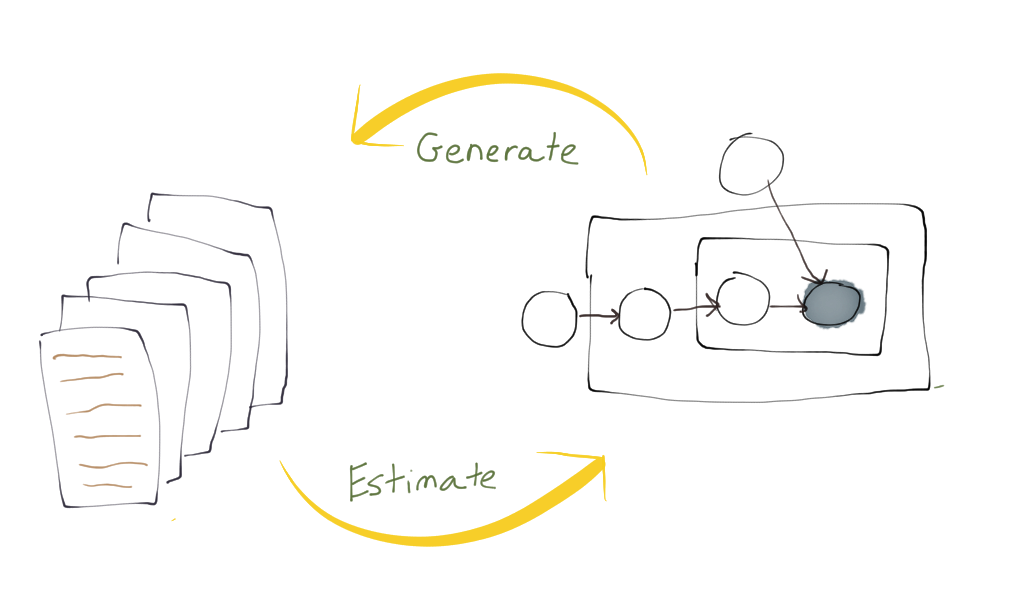 Generate
Estimate